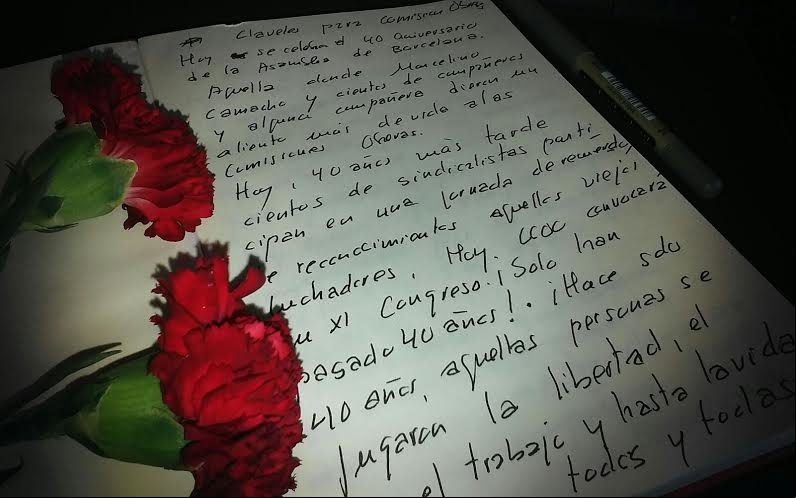 Claveles para Comisiones Obreras
Hoy se celebra el 40 aniversario
de la Asamblea de Barcelona.
Aquella donde Marcelino
Camacho y cientos de compañeros
y alguna compañera dieron un
aliento más de vida a las
Comisiones Obreras.
Hoy, 40 años más tarde
cientos de sindicalistas parti
cipan en una jornada de recuerdo
e reconocimientos aquellos viejos
luchadores. Hoy. CCOO convocará
su XI Congreso. ¡Solo han
pasado 40 años!. ¡Hace solo
40 años, aquellas personas se
jugaron la libertad, el
el trabajo y hasta la vida
todos y todas